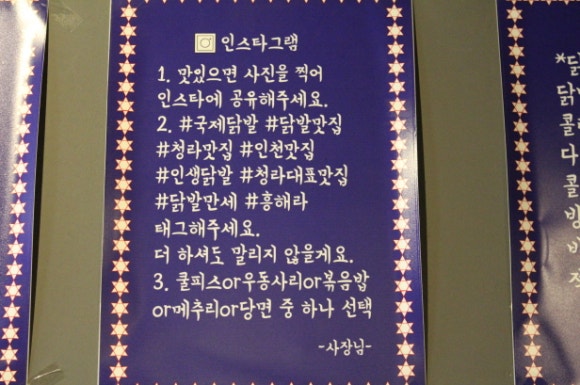 인스타그램
1. 맛있으면 사진을 찍어
인스타에 공유해주세요.
2. #국제닭발 #닭발맛집
#청라맛집 #인천맛집
#인생닭발 #청라대표맛집
#닭발만세 #흥해라
태그해주세요.
더 하셔도 말리지 않을게요.
3. 쿨피스or우동사리or볶음밥
or메추리or당면 중 하나 선택
-사장님-